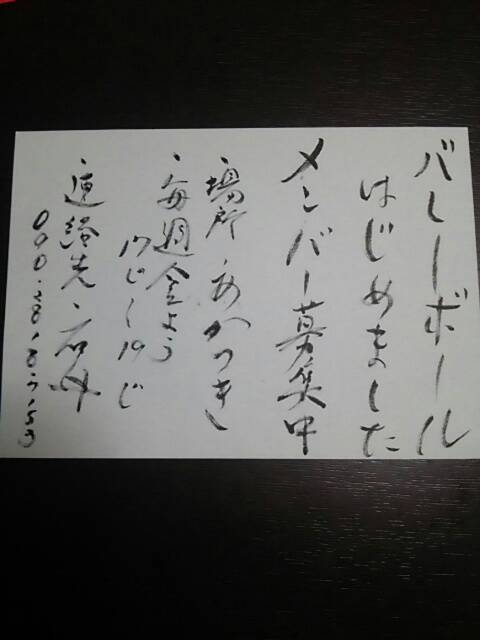 バレーボール
はじめました
メンバー募集中
・場所・あかつき
・毎週金よう
17じ〜19じ
・連絡先・石井